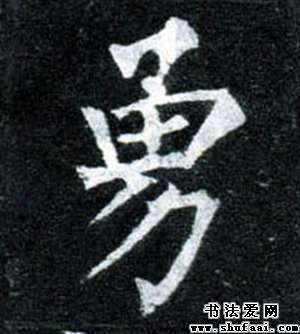 勇
书法爱网
www.shufaai.com